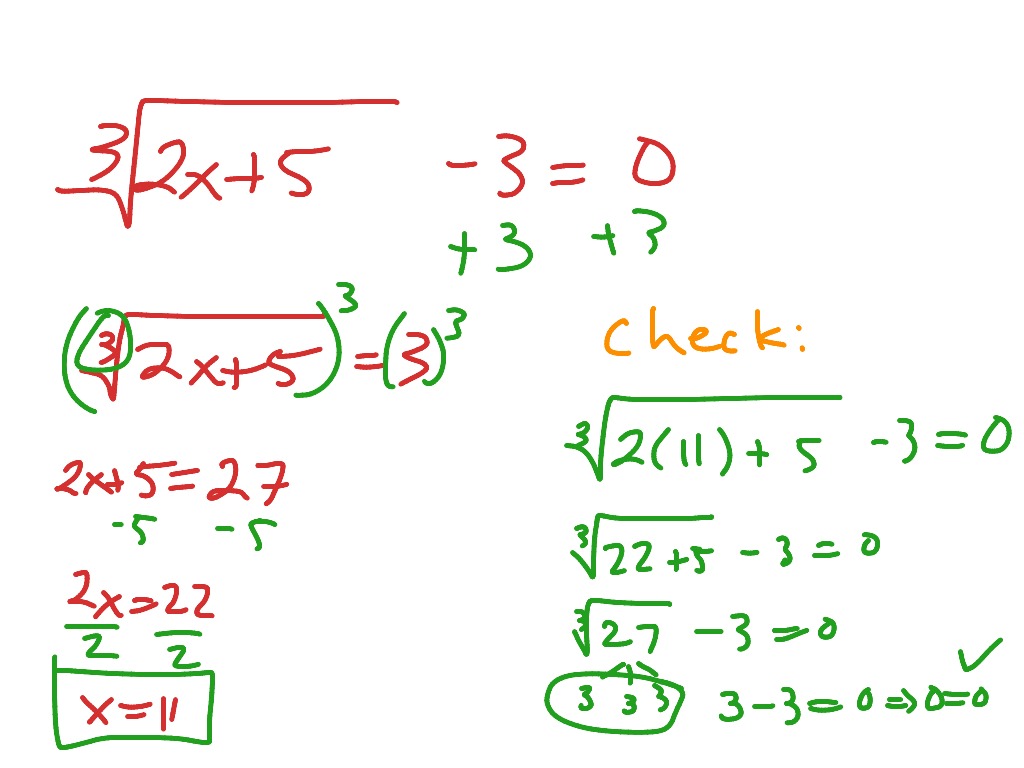 ∛(2x+5) -3 = 0
+3 +3
(∛(2x+5))³ = (3)³
2x+5=27
-5 -5
2x=22
2 2
x=11
Check:
∛(2(11)+5) -3=0
∛(22+5) -3=0
∛27 -3=0
3 3 3
3-3=0=>0=0 ✓